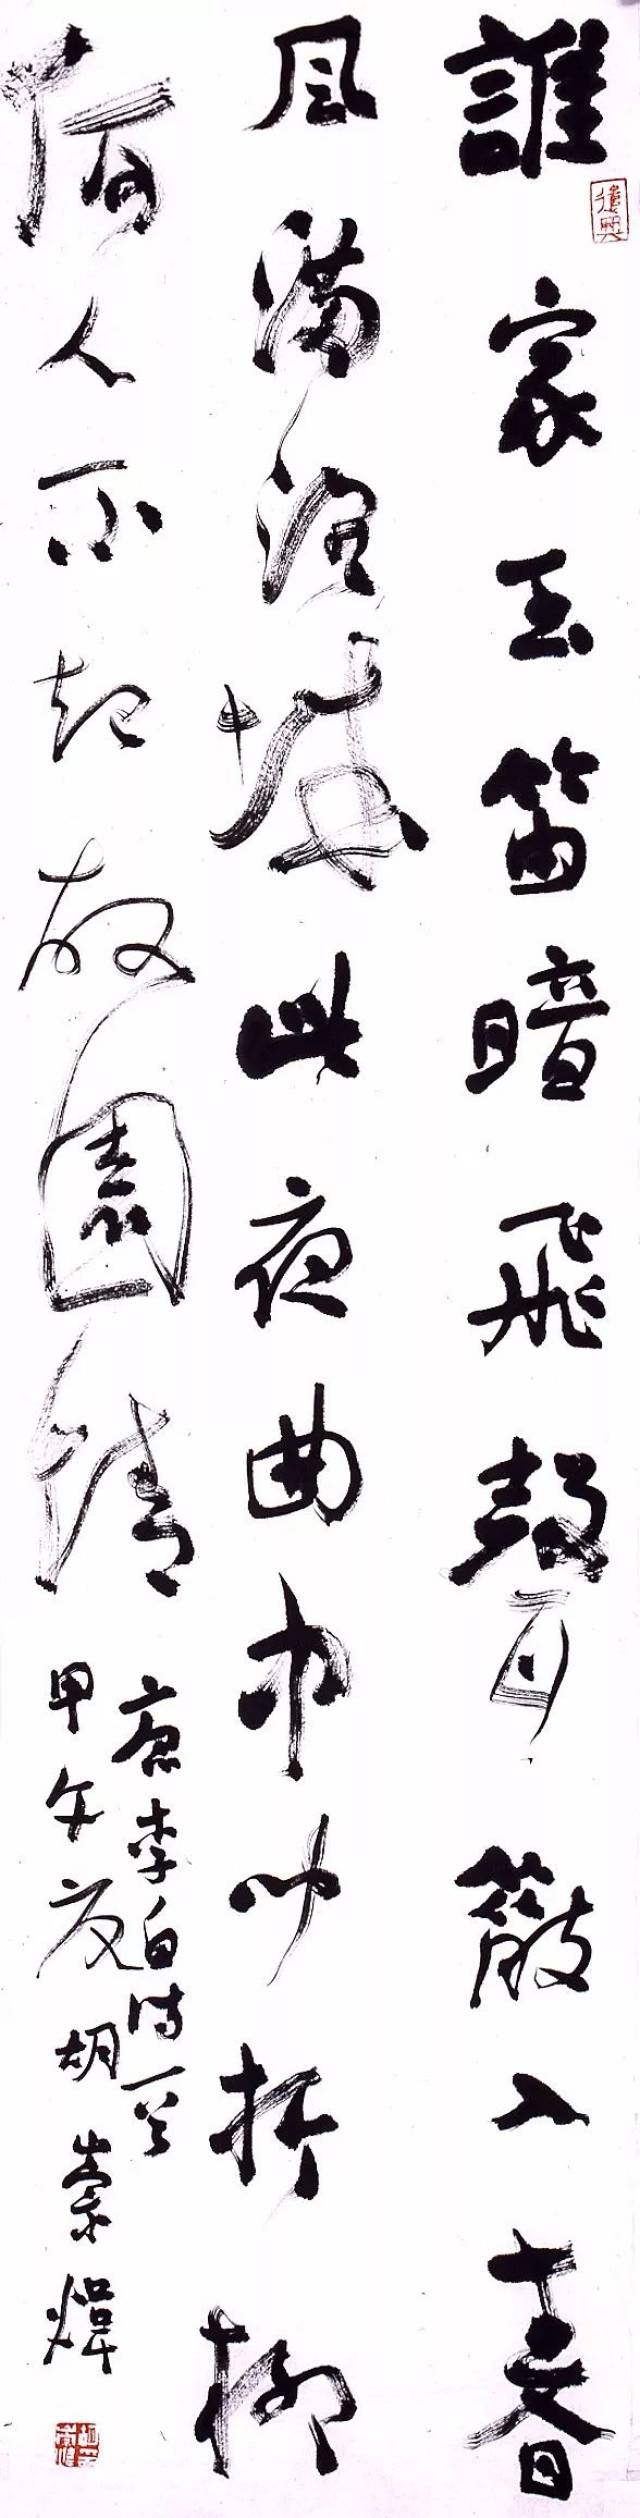 誰家玉笛暗飛聲散入春
風滿洛城此夜曲中聞折柳
何人不起故園情
唐李白詩一首
甲午夏胡崇煒